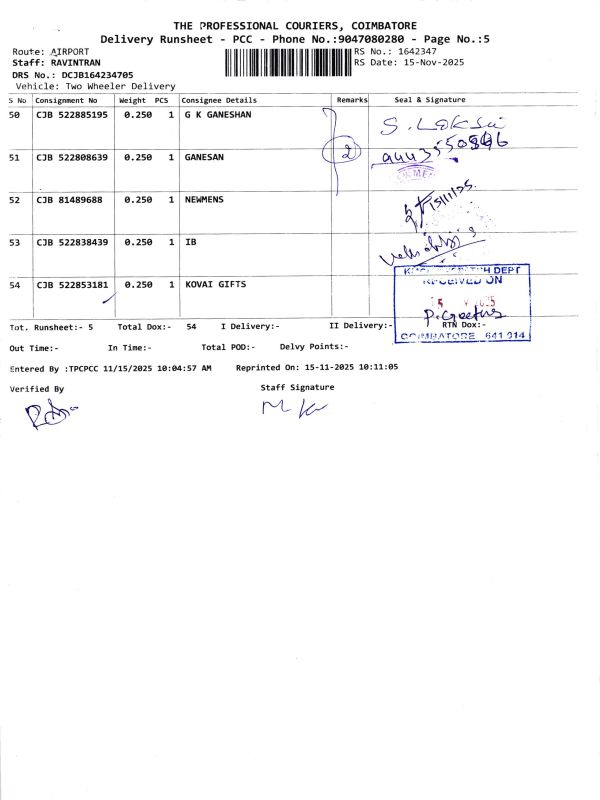 THE PROFESSIONAL COURIERS, COIMBATORE
Delivery Runsheet - PCC - Phone No.:9047080280 - Page No.:5
Route: AIRPORT RS No.: 1642347
Staff: RAVINTRAN RS Date: 15-Nov-2025
DRS No.: DCJB164234705
Vehicle: Two Wheeler Delivery
S No Consignment No Weight PCS Consignee Details Remarks Seal & Signature
50 CJB 522885195 0.250 1 G K GANESHAN
2
51 CJB 522808639 0.250 1 GANESAN
52 CJB 81489688 0.250 1 NEWMENS
15/11/25
53 CJB 522838439 0.250 1 IB
DEPT
54 CJB 522853181 0.250 1 KOVAI GIFTS
RECEIVED ON
P. Geetha
Tot. Runsheet:- 5 Total Dox:- 54 I Delivery:- II Delivery:- RTN Dox:-
COIMBATORE 641 014
Out Time:- In Time:- Total POD:- Delvy Points:-
Entered By :TPCPCC 11/15/2025 10:04:57 AM Reprinted On: 15-11-2025 10:11:05
Verified By Staff Signature